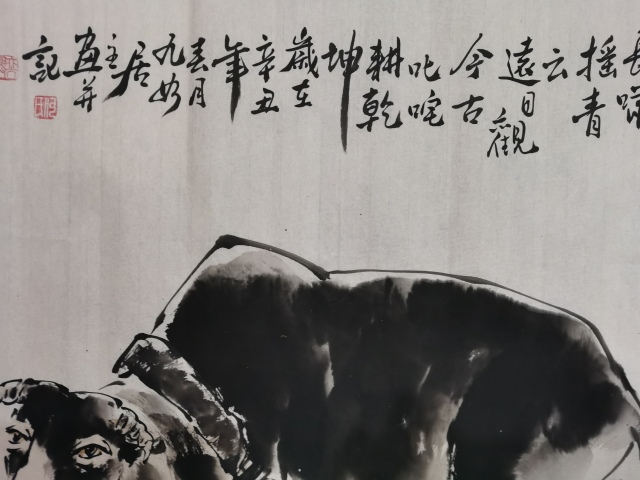 長嘯
搖青
云
遠目觀
今古
叱咤
耕乾
坤
歲在
辛丑
年
春月
九如
居
主
画并
記